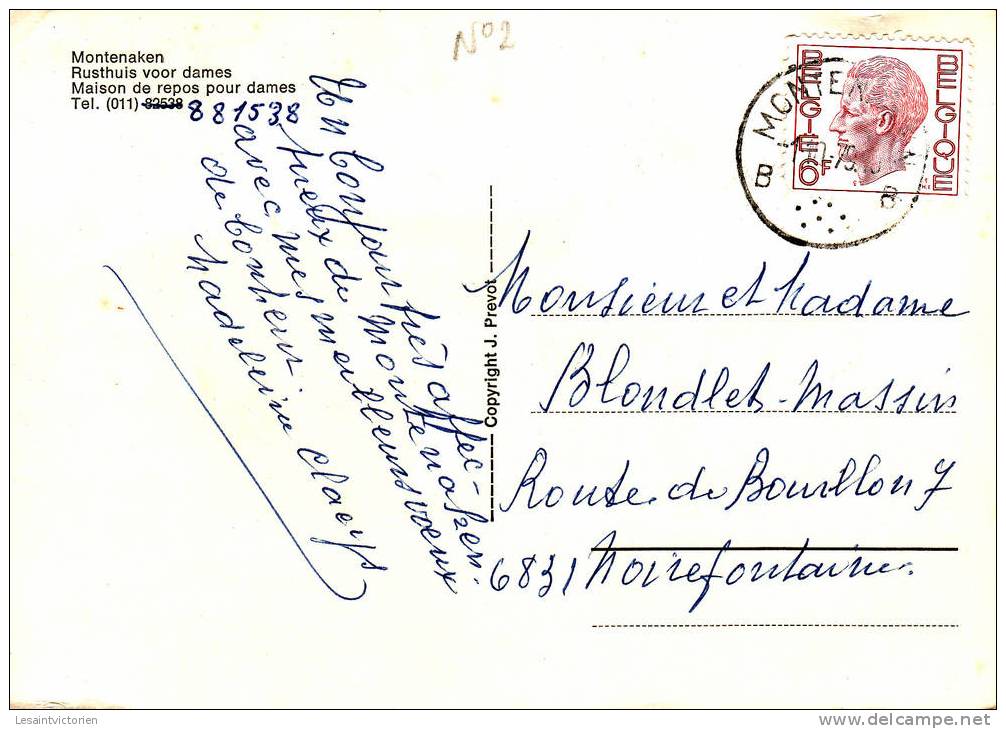 Montenaken
Rusthuis voor dames
Maison de repos pour dames
Tel. (011) 82538 881538
N°2
Un bonjour très affec-
tueux de Montenaken.
avec mes meilleurs voeux
de bonheur.
Madeleine Claeys
Copyright J. Prevot
BELGIE 6F
BELGIQUE
MONTENA
B B
Monsieur et Madame
Blondlet-Massin
Route de Bouillon 7
6831 Noirefontaine.
Lesaintvictorien
delcampe.net